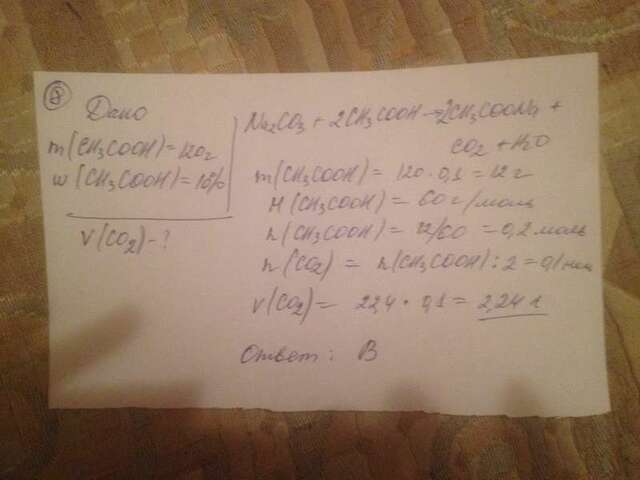 ⑧ Дано
m(CH3COOH) = 120г
w(CH3COOH) = 10%
V(CO2) - ?
Na2CO3 + 2CH3COOH → 2CH3COONa +
CO2 + H2O
m(CH3COOH) = 120 · 0,1 = 12 г
M(CH3COOH) = 60 г/моль
n(CH3COOH) = 12/60 = 0,2 моль
n(CO2) = n(CH3COOH) : 2 = 0,1 моль
V(CO2) = 22,4 · 0,1 = 2,24 л
Ответ: В